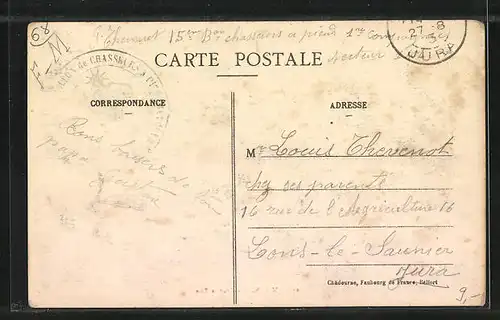 68
Thevenot 15ème Bon chasseurs à pied 1re Compagnie
secteur
27 -8
JURA
CHASSEURS
CARTE POSTALE
CORRESPONDANCE
ADRESSE
Bons baisers de
papa
Mr Louis Thevenot
chez ses parents
16 rue de l'Agriculture 16
Lons-le-Saunier
Jura
Chadourne, Faubourg de France, Belfort
9,-